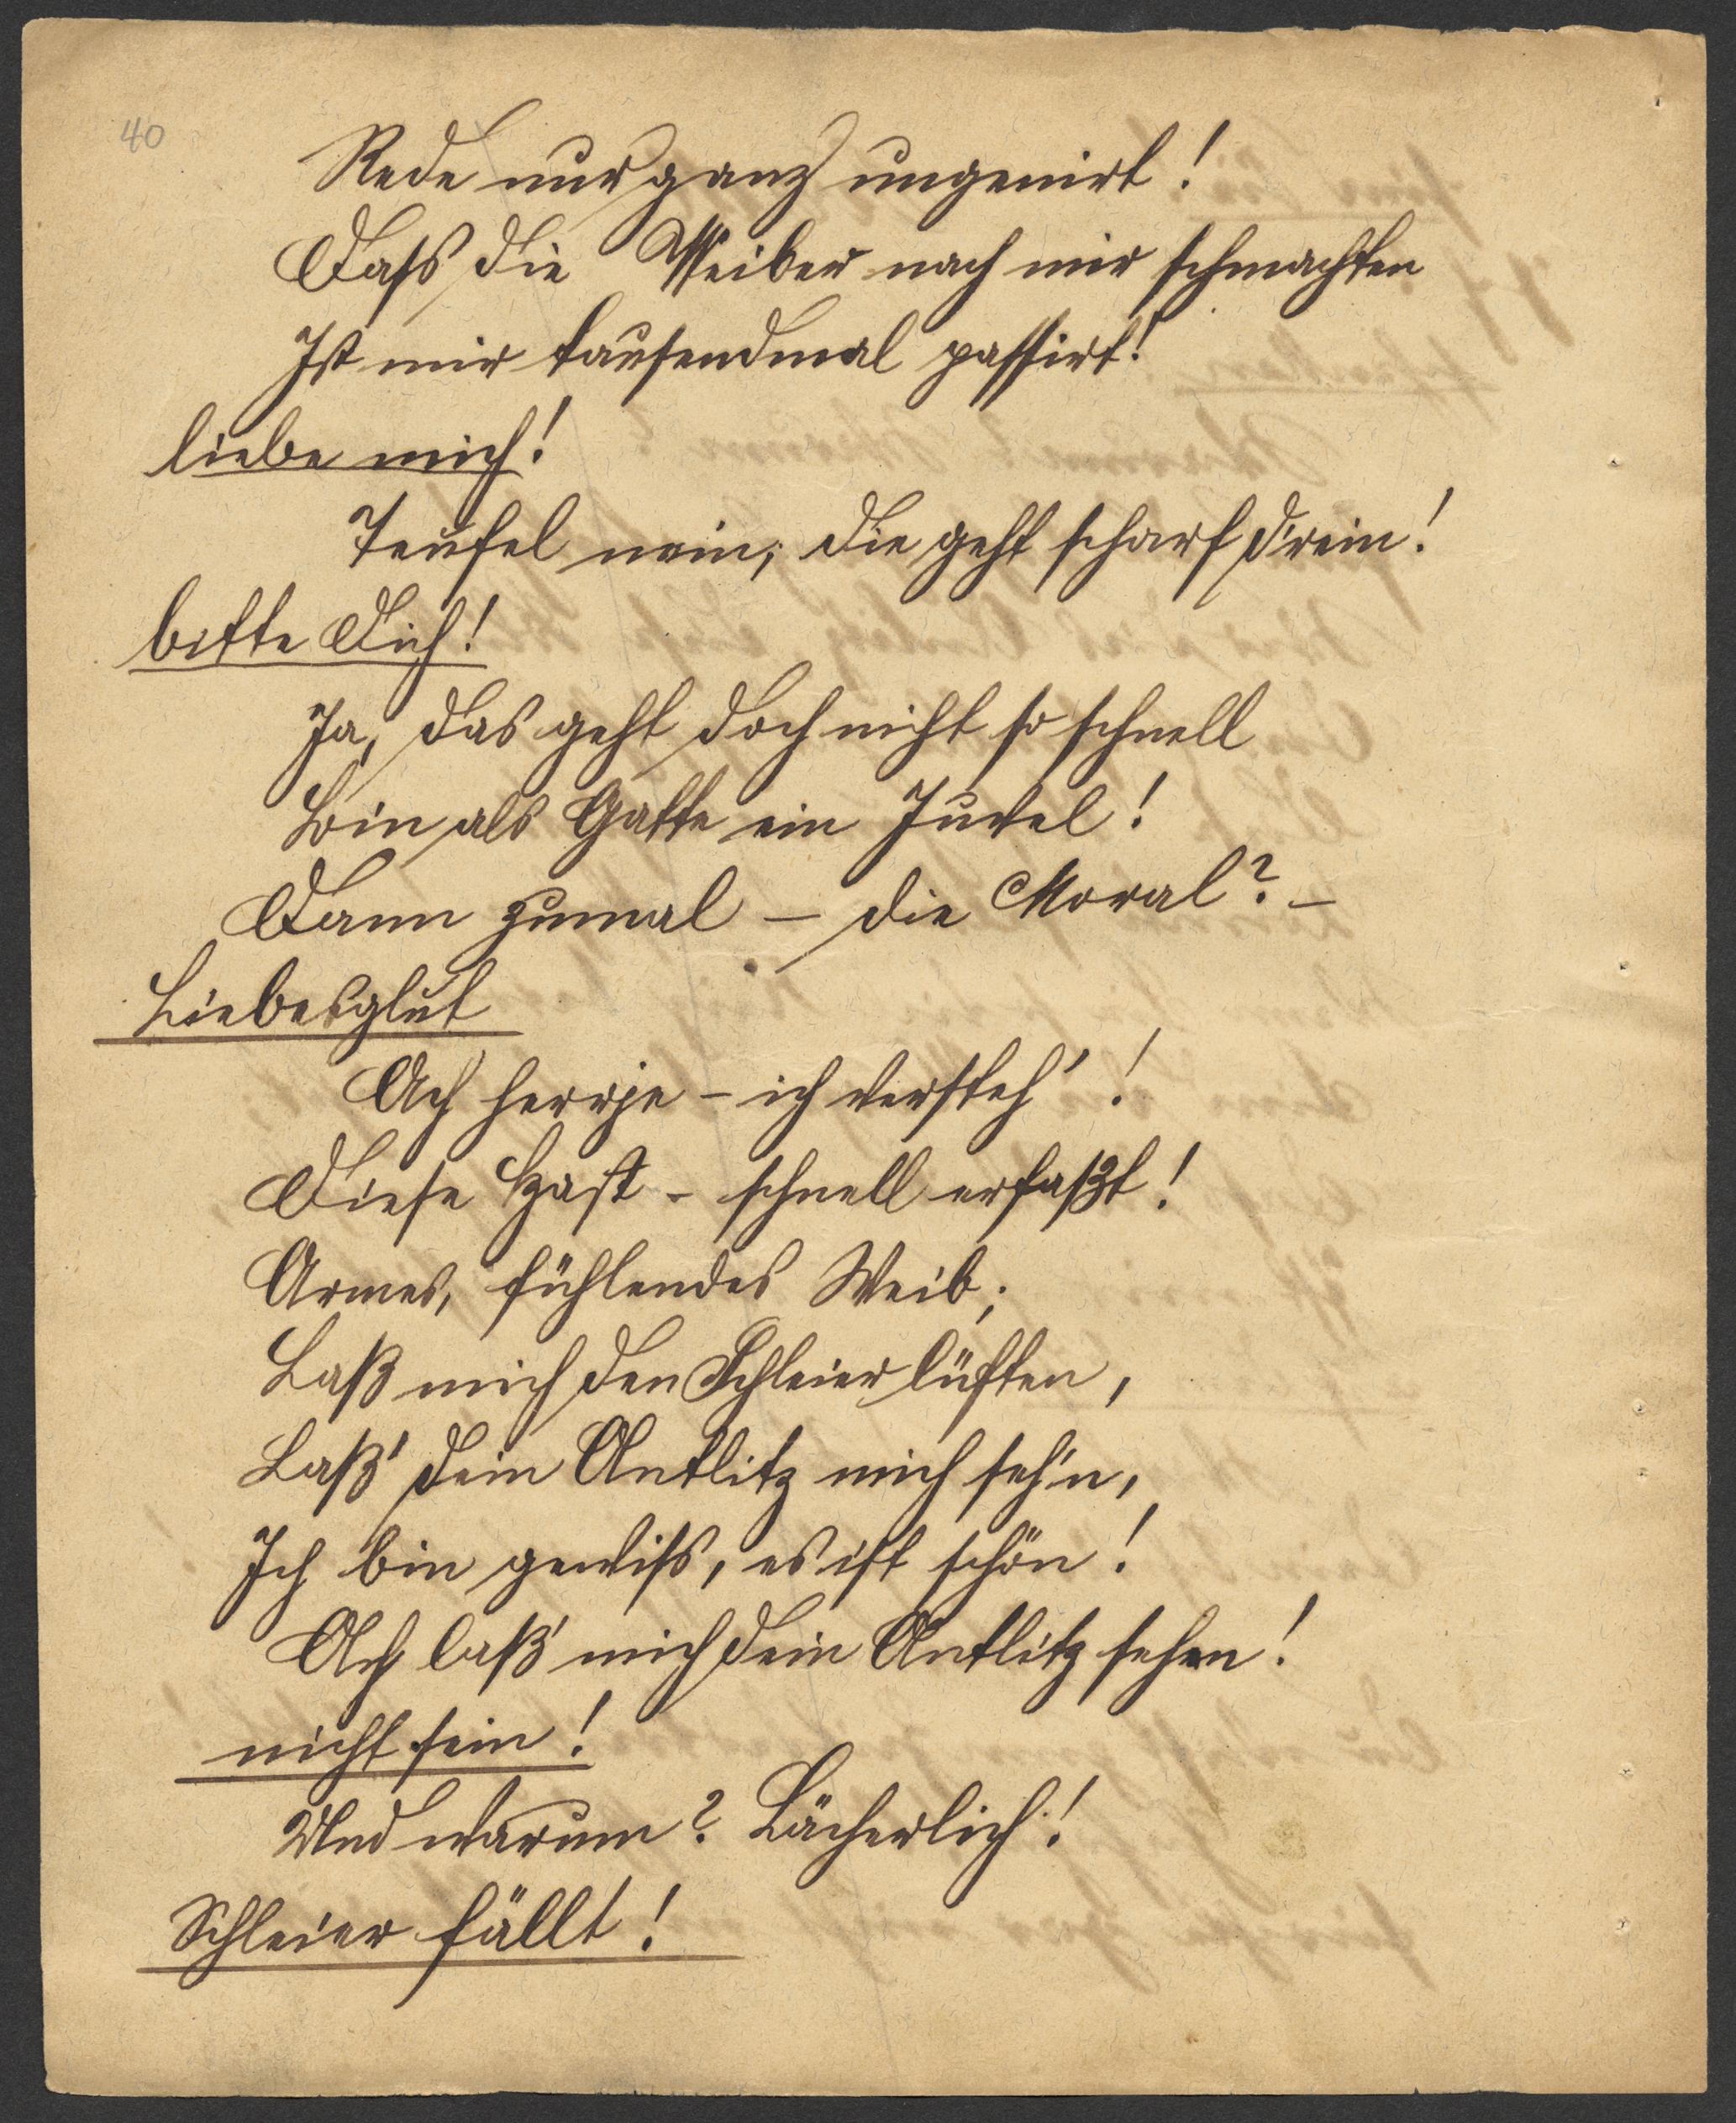 40
Rede nur ganz ungenirt!
Dass die Weiber nach mir schmachten
Ist mir tausendmal passirt!
liebe mich!
Teufel nein; die geht scharf d'rein!
bitte Dich!
Ja, das geht doch nicht so schnell
Bin als Gatte ein Juwel!
Dann zumal – die Moral? –
Liebesglut
Ach herrje – ich versteh'!
Diese Hast – schnell erfaßt!
Armes, fühlendes Weib;
Laß mich den Schleier lüften,
Laß' dein Antlitz mich seh'n,
Ich bin gewiss, es ist schön!
Ach laß' mich dein Antlitz sehen!
nicht sein!
Und warum? Lächerlich!
Schleier fällt!